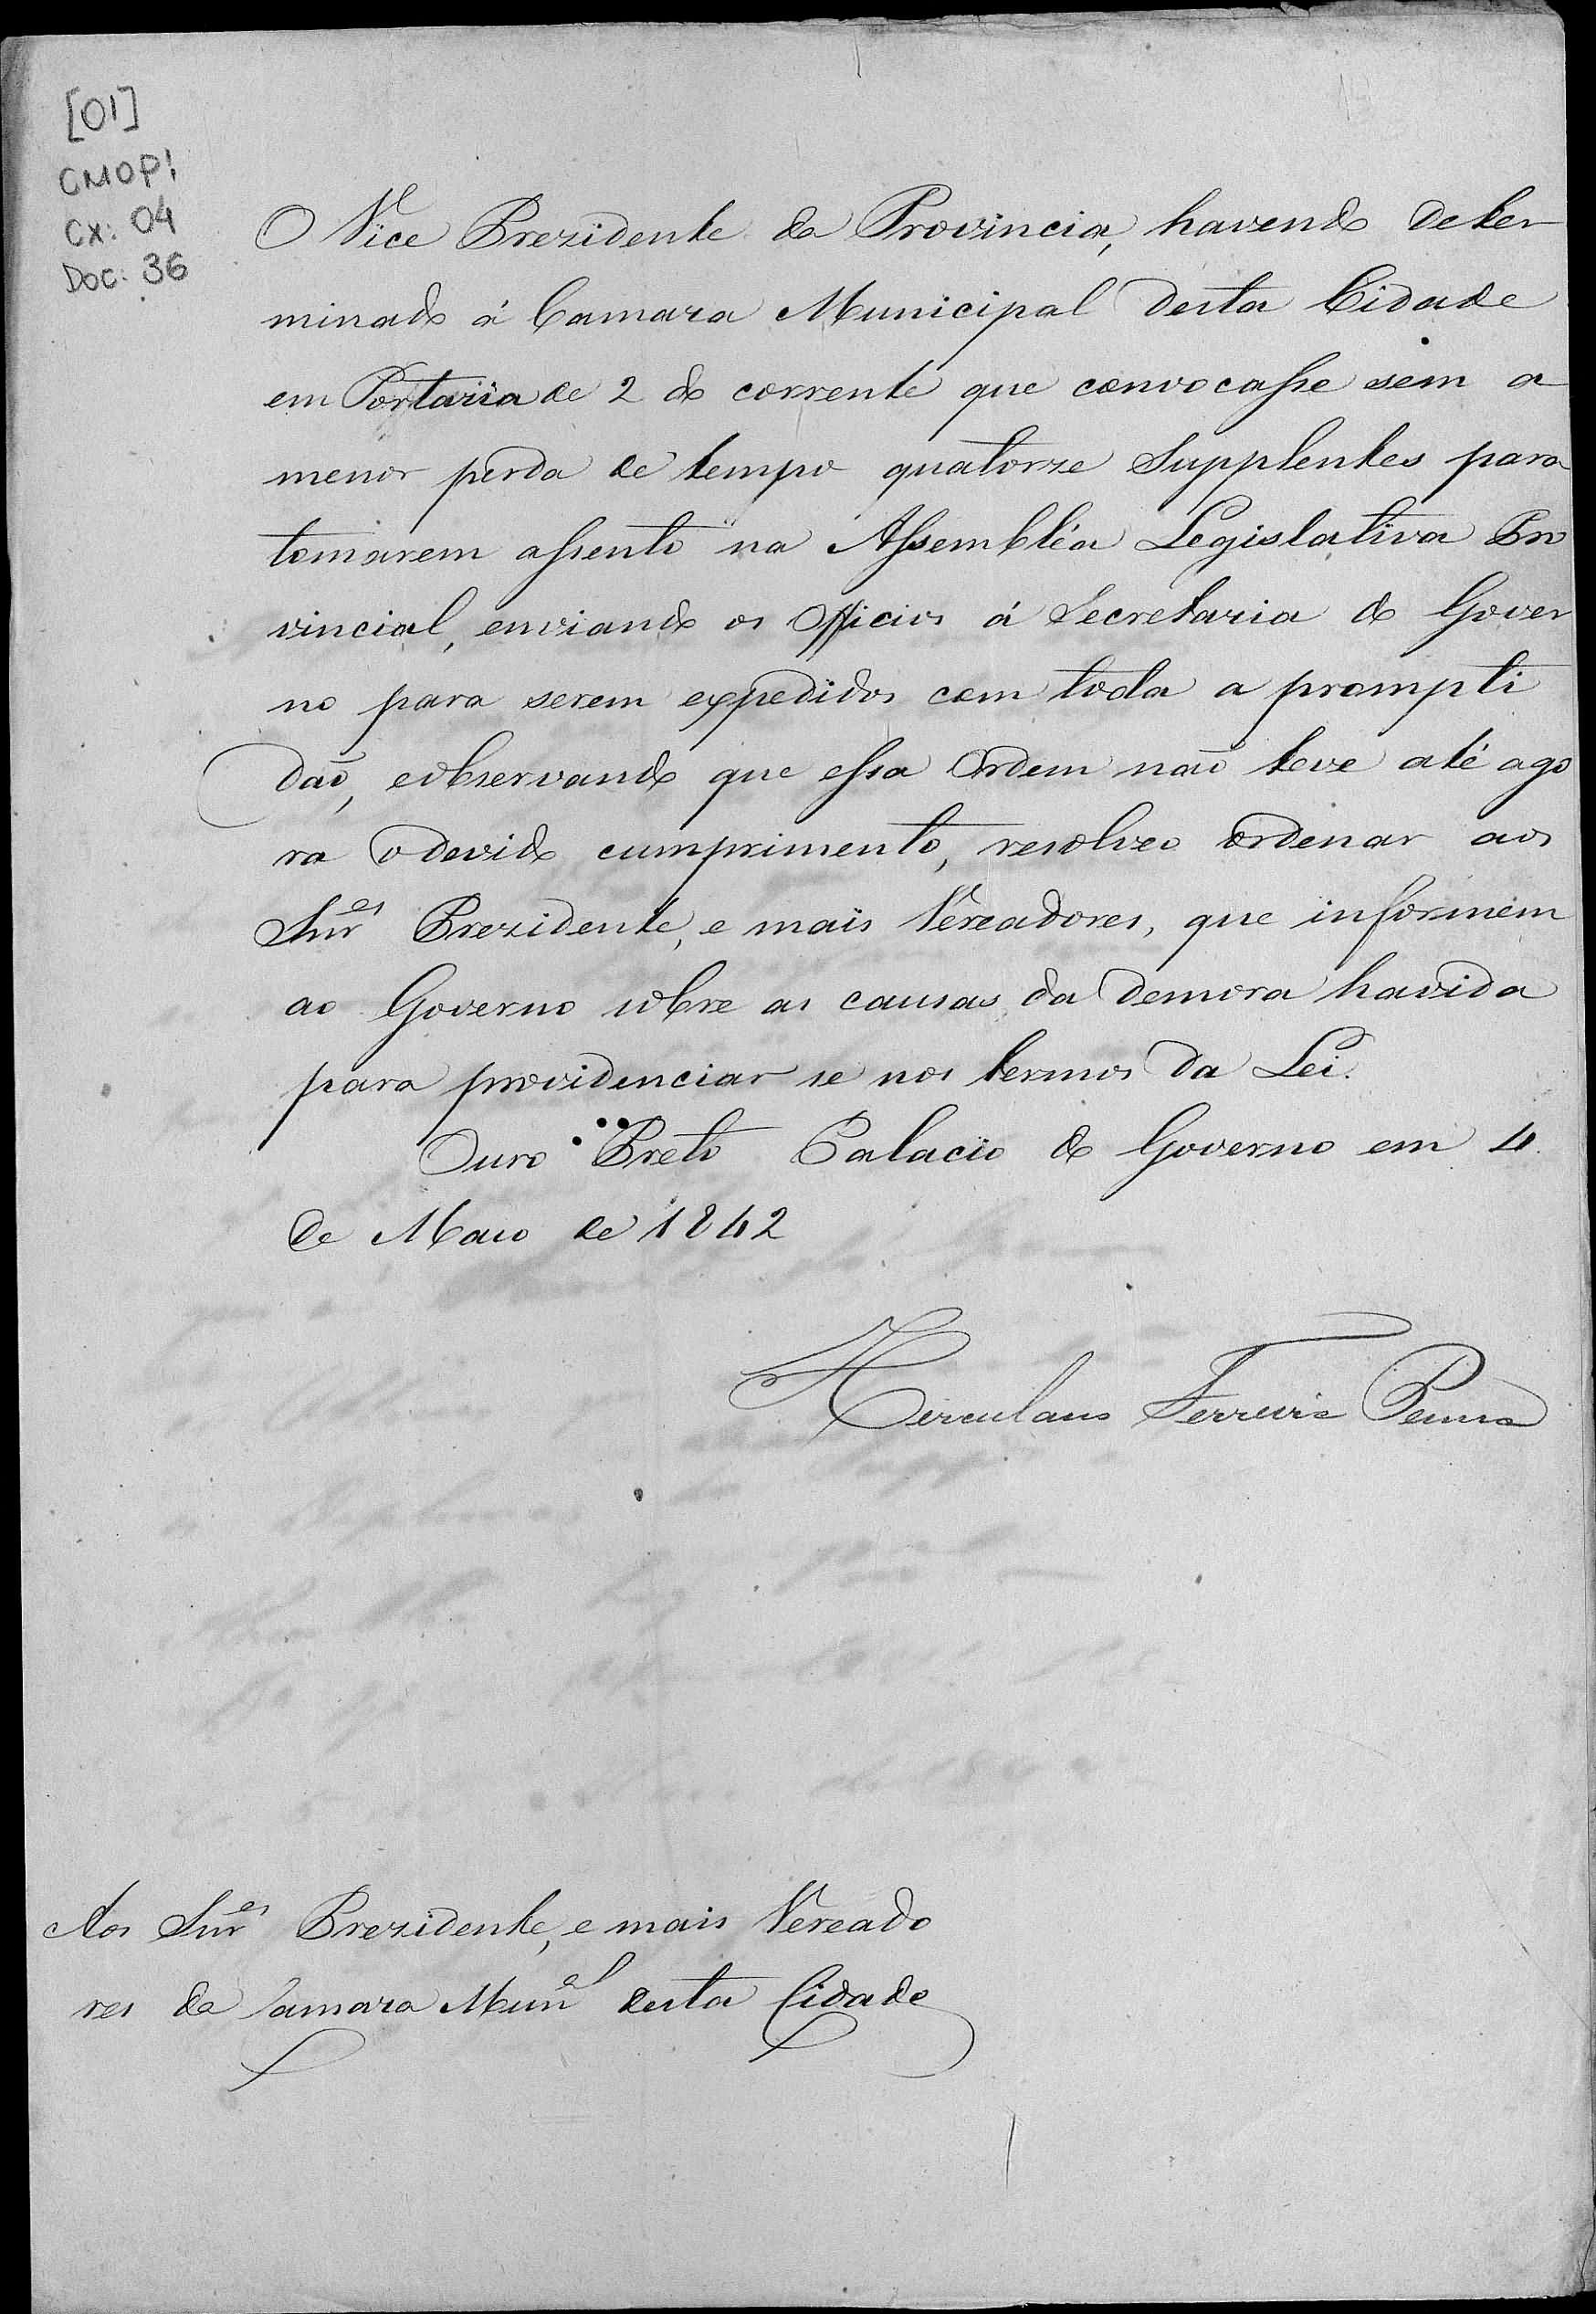 [01]
CMOP!
Cx: 04
Doc: 36
O Vice Prezidente da Provincia, havendo deter
minado á Camara Municipal desta Cidade
em Portaria de 2 do corrente que convocasse sem a
menor perda de tempo quatorze Supplentes para
tomarem assento na Assembléa Legislativa Pro
vincial, enviando os Officios á Secretaria do Gover
no para serem expedidos com toda a prompti
daõ, e observando que essa Ordem naõ teve até ago
ra o devido cumprimento, resolveo ordenar aos
Snr.es Prezidente, e mais Vereadores, que informem
ao Governo sobre as causas da demora havida
para providenciar se nos termos da Lei.
Ouro Preto Palacio do Governo em 4
de Maio de 1842
Herculano Ferreira Penna
Aos Snr.es Prezidente, e mais Vereado
res da Camara Mun.al desta Cidade